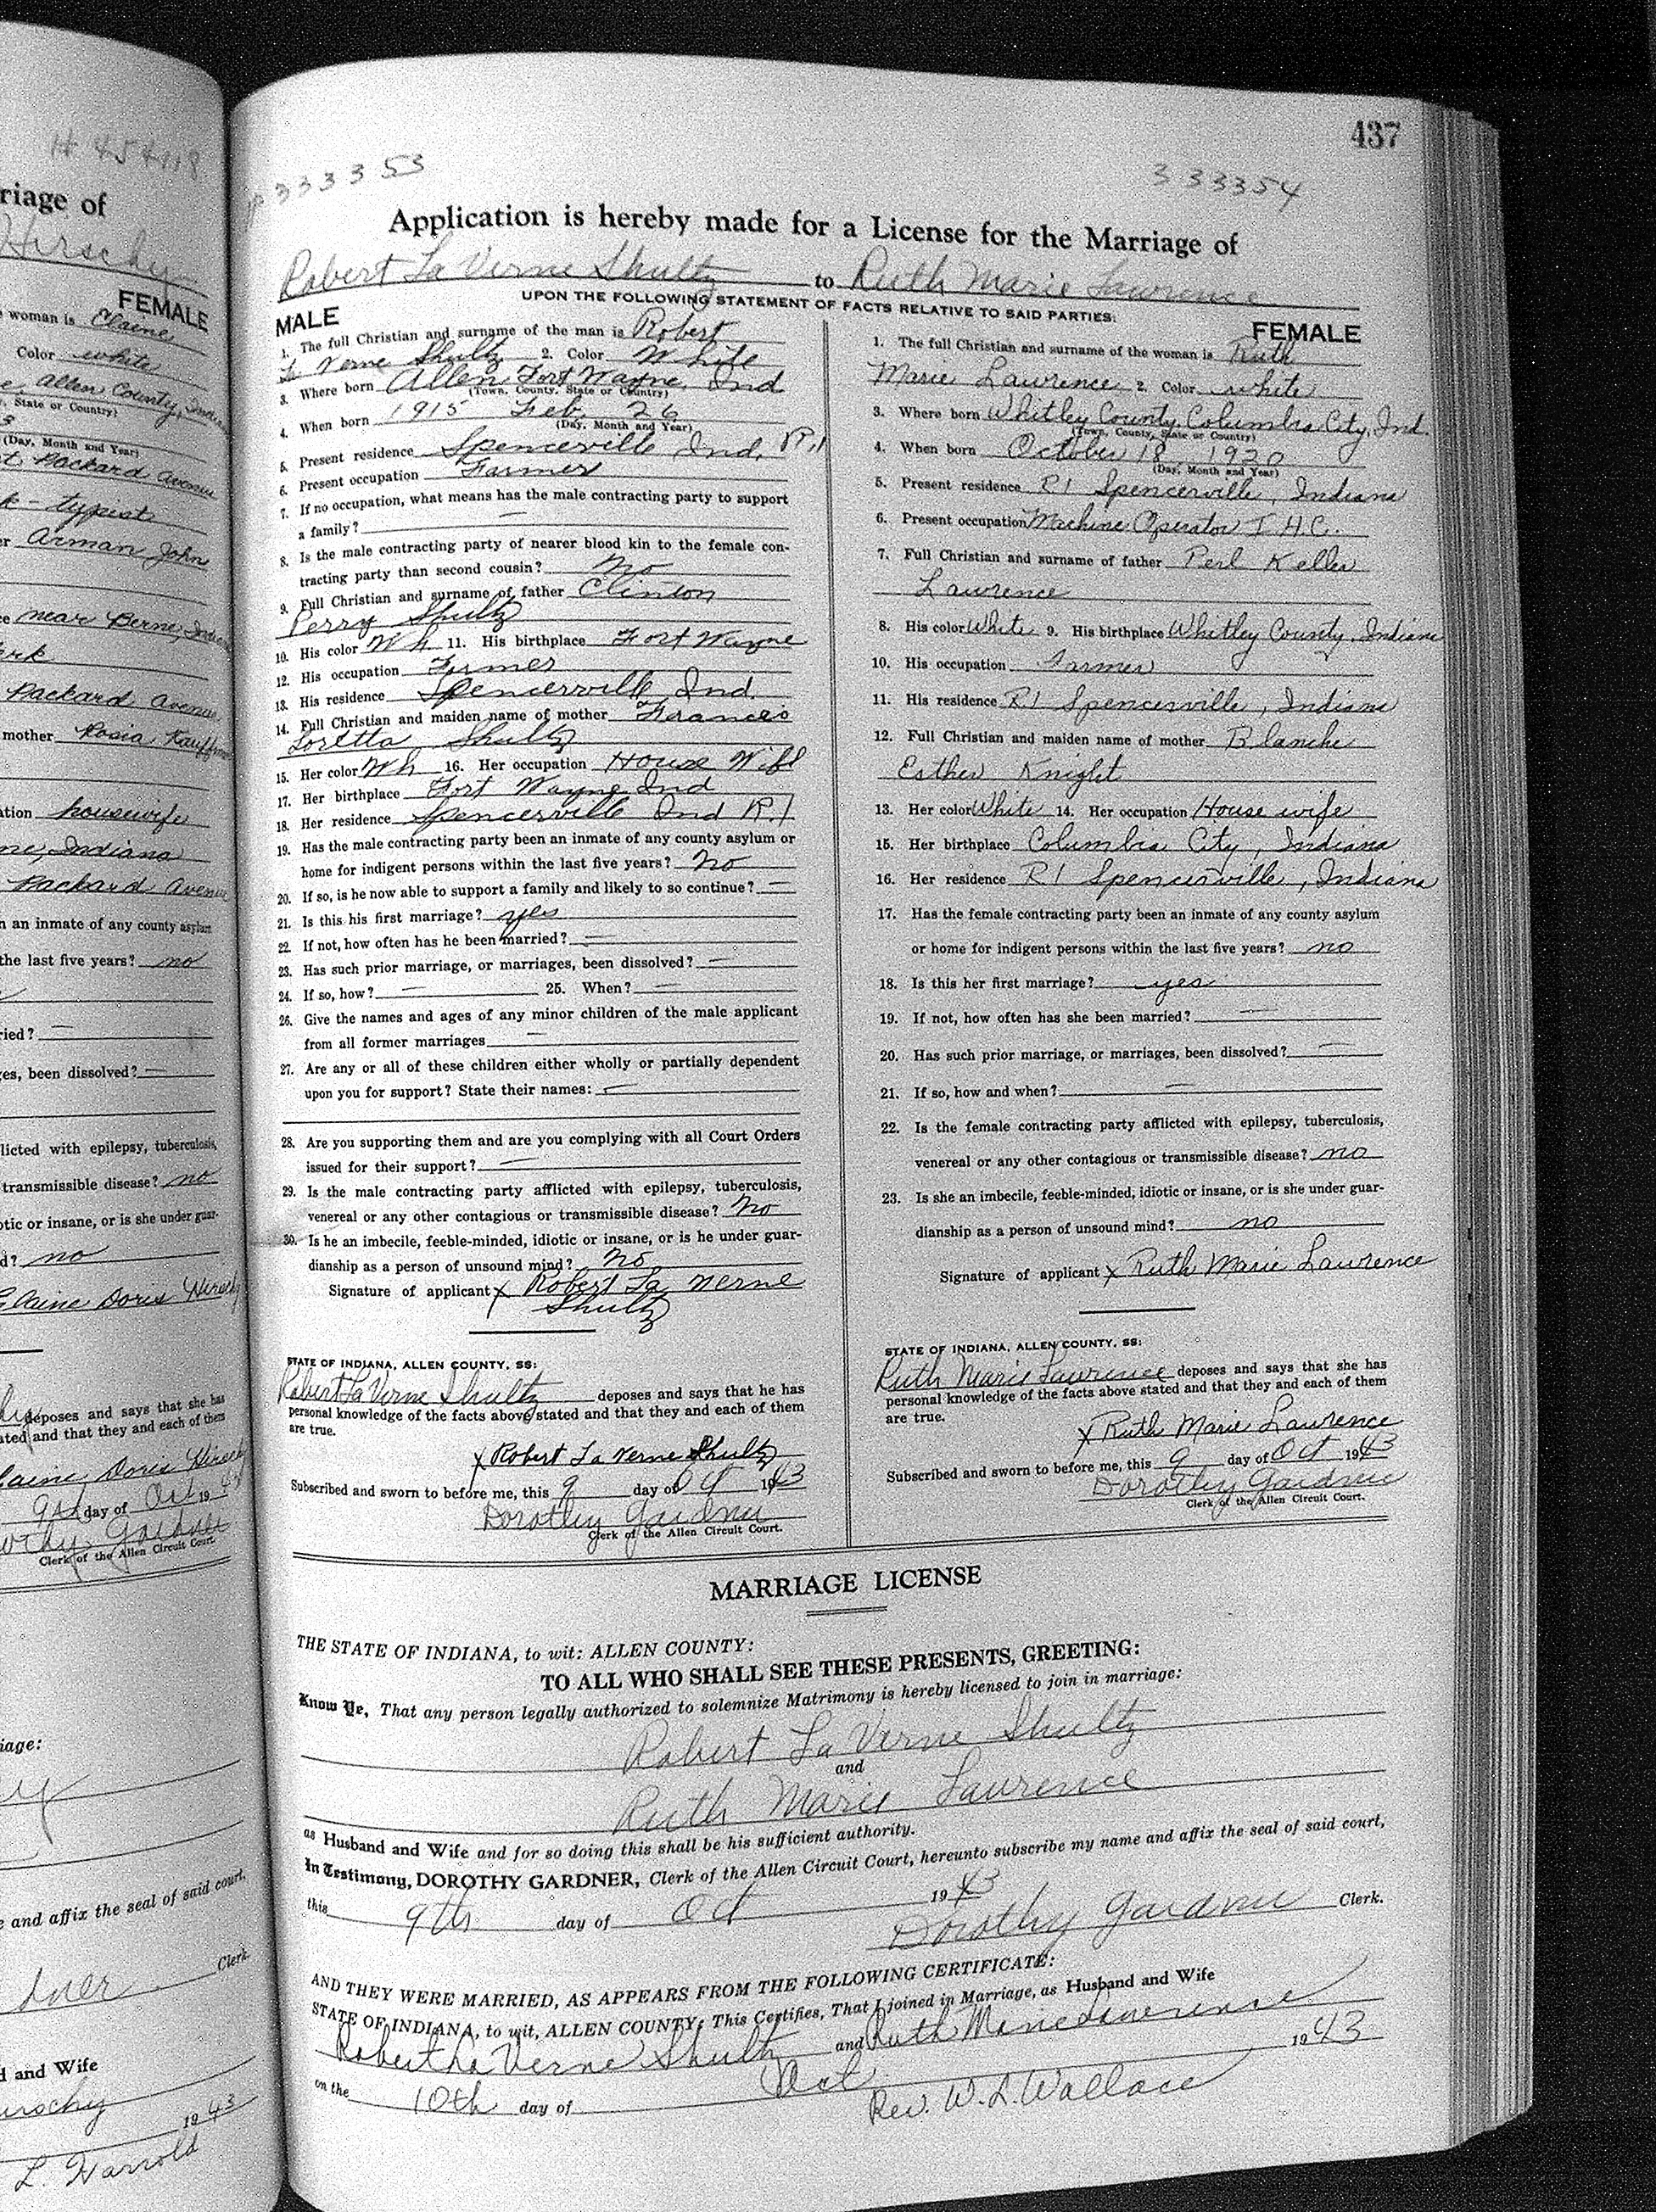 437
333353
333354
Application is hereby made for a License for the Marriage of
Robert La Verne Shultz to Ruth Marie Lawrence
UPON THE FOLLOWING STATEMENT OF FACTS RELATIVE TO SAID PARTIES:
MALE
1. The full Christian and surname of the man is Robert
La Verne Shultz 2. Color White
3. Where born Allen Fort Wayne, Ind
(Town, County, State or Country)
4. When born 1915 Feb. 26
(Day, Month and Year)
5. Present residence Spencerville Ind. R.1
6. Present occupation Farmer
7. If no occupation, what means has the male contracting party to support
a family? —
8. Is the male contracting party of nearer blood kin to the female con-
tracting party than second cousin? No
9. Full Christian and surname of father Clinton
Perry Shultz
10. His color Wh 11. His birthplace Fort Wayne
12. His occupation Frmer
13. His residence Spencerville, Ind.
14. Full Christian and maiden name of mother Frances
Loretta Shultz
15. Her color Wh 16. Her occupation House Wife
17. Her birthplace Fort Wayne Ind
18. Her residence Spencerville Ind R.1
19. Has the male contracting party been an inmate of any county asylum or
home for indigent persons within the last five years? No
20. If so, is he now able to support a family and likely to so continue? —
21. Is this his first marriage? yes
22. If not, how often has he been married? —
23. Has such prior marriage, or marriages, been dissolved? —
24. If so, how? — 25. When? —
26. Give the names and ages of any minor children of the male applicant
from all former marriages —
27. Are any or all of these children either wholly or partially dependent
upon you for support? State their names: —
28. Are you supporting them and are you complying with all Court Orders
issued for their support? —
29. Is the male contracting party afflicted with epilepsy, tuberculosis,
venereal or any other contagious or transmissible disease? No
30. Is he an imbecile, feeble-minded, idiotic or insane, or is he under guar-
dianship as a person of unsound mind? No
Signature of applicant x Robert La Verne
Shultz
STATE OF INDIANA, ALLEN COUNTY, SS:
Robert La Verne Shultz deposes and says that he has
personal knowledge of the facts above stated and that they and each of them
are true.
x Robert La Verne Shultz
Subscribed and sworn to before me, this 9 day of Oct 1943
Dorothy Gardner
Clerk of the Allen Circuit Court.
FEMALE
1. The full Christian and surname of the woman is Ruth
Marie Lawrence 2. Color white
3. Where born Whitley County, Columbia City, Ind.
(Town, County, State or Country)
4. When born October 18, 1920
(Day, Month and Year)
5. Present residence R1 Spencerville, Indiana
6. Present occupation Machine Operator I.H.C.
7. Full Christian and surname of father Perl Keller
Lawrence
8. His color White 9. His birthplace Whitley County, Indiana
10. His occupation Farmer
11. His residence R1 Spencerville, Indiana
12. Full Christian and maiden name of mother Blanche
Esther Knight
13. Her color White 14. Her occupation House wife
15. Her birthplace Columbia City, Indiana
16. Her residence R1 Spencerville, Indiana
17. Has the female contracting party been an inmate of any county asylum
or home for indigent persons within the last five years? no
18. Is this her first marriage? yes
19. If not, how often has she been married? —
20. Has such prior marriage, or marriages, been dissolved? —
21. If so, how and when? —
22. Is the female contracting party afflicted with epilepsy, tuberculosis,
venereal or any other contagious or transmissible disease? no
23. Is she an imbecile, feeble-minded, idiotic or insane, or is she under guar-
dianship as a person of unsound mind? no
Signature of applicant x Ruth Marie Lawrence
STATE OF INDIANA, ALLEN COUNTY, SS:
Ruth Marie Lawrence deposes and says that she has
personal knowledge of the facts above stated and that they and each of them
are true.
x Ruth Marie Lawrence
Subscribed and sworn to before me, this 9 day of Oct 1943
Dorothy Gardner
Clerk of the Allen Circuit Court.
MARRIAGE LICENSE
THE STATE OF INDIANA, to wit: ALLEN COUNTY:
TO ALL WHO SHALL SEE THESE PRESENTS, GREETING:
Know Ye, That any person legally authorized to solemnize Matrimony is hereby licensed to join in marriage:
Robert La Verne Shultz
and
Ruth Marie Lawrence
as Husband and Wife and for so doing this shall be his sufficient authority.
In Testimony, DOROTHY GARDNER, Clerk of the Allen Circuit Court, hereunto subscribe my name and affix the seal of said court,
this 9th day of Oct 1943
Dorothy Gardner Clerk.
AND THEY WERE MARRIED, AS APPEARS FROM THE FOLLOWING CERTIFICATE:
STATE OF INDIANA, to wit, ALLEN COUNTY: This Certifies, That I joined in Marriage, as Husband and Wife
Robert La Verne Shultz and Ruth Marie Lawrence
on the 10th day of Oct 1943
Rev. W. L. Wallace